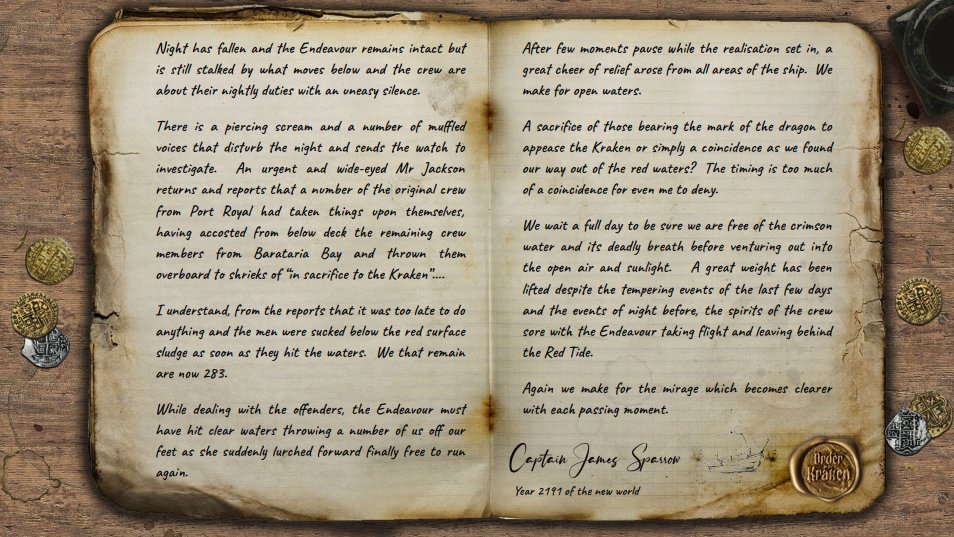 Night has fallen and the Endeavour remains intact but
is still stalked by what moves below and the crew are
about their nightly duties with an uneasy silence.
There is a piercing scream and a number of muffled
voices that disturb the night and sends the watch to
investigate. An urgent and wide-eyed Mr Jackson
returns and reports that a number of the original crew
from Port Royal had taken things upon themselves,
having accosted from below deck the remaining crew
members from Barataria Bay and thrown them
overboard to shrieks of “in sacrifice to the Kraken”....
I understand, from the reports that it was too late to do
anything and the men were sucked below the red surface
sludge as soon as they hit the waters. We that remain
are now 283.
While dealing with the offenders, the Endeavour must
have hit clear waters throwing a number of us off our
feet as she suddenly lurched forward finally free to run
again.
After few moments pause while the realisation set in, a
great cheer of relief arose from all areas of the ship. We
make for open waters.
A sacrifice of those bearing the mark of the dragon to
appease the Kraken or simply a coincidence as we found
our way out of the red waters? The timing is too much
of a coincidence for even me to deny.
We wait a full day to be sure we are free of the crimson
water and its deadly breath before venturing out into
the open air and sunlight. A great weight has been
lifted despite the tempering events of the last few days
and the events of night before, the spirits of the crew
sore with the Endeavour taking flight and leaving behind
the Red Tide.
Again we make for the mirage which becomes clearer
with each passing moment.
Captain James Sparrow
Year 2191 of the new world
Order
Kraken